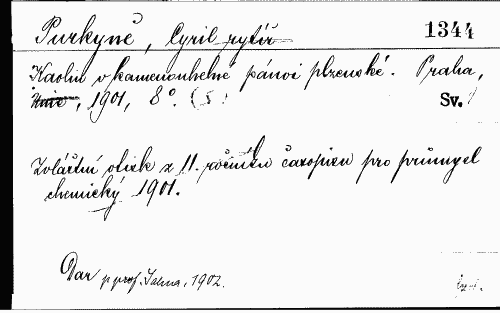 Purkyně, Cyril rytíř 1344
Kaolin v kamenouhelné pánvi plzenské. Praha,
1901, 8°. (5.) Sv. 1
Zvláštní otisk z 11. ročníku časopisu pro průmysl
chemický 1901.
Dar p. prof. Jahna, 1902.